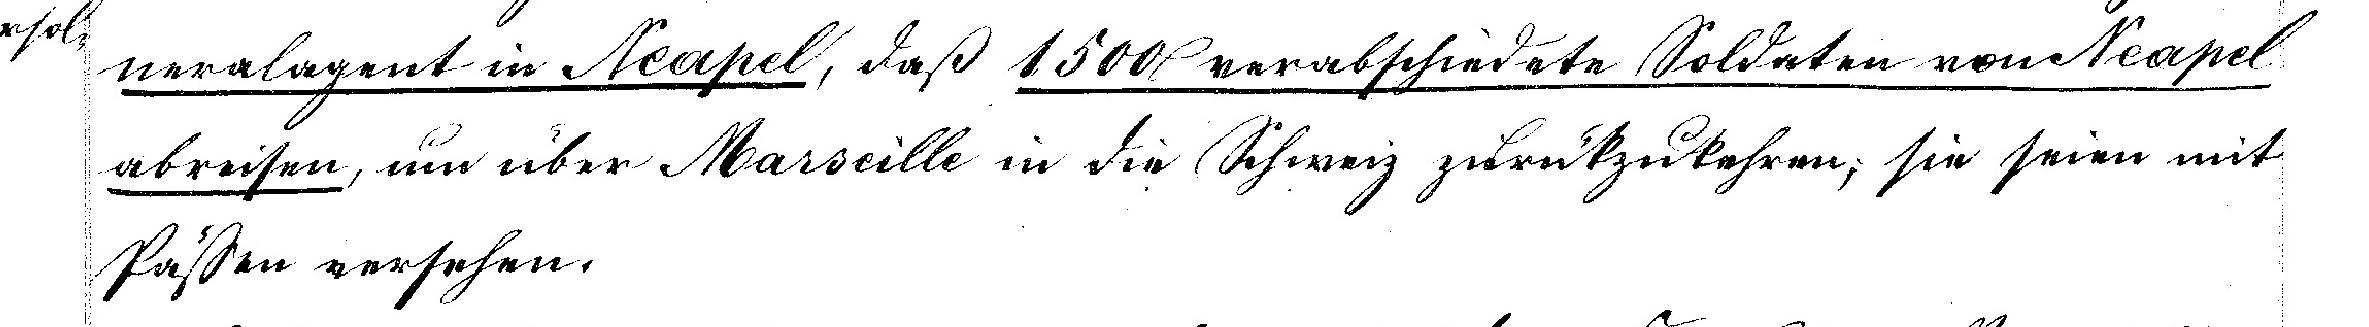 neralagent in Neapel, daß 1500 verabschiedete Soldaten von Neapel
abreisen, um über Marseille in die Schweiz zurükzukehren; sie seien mit
Päßen versehen.